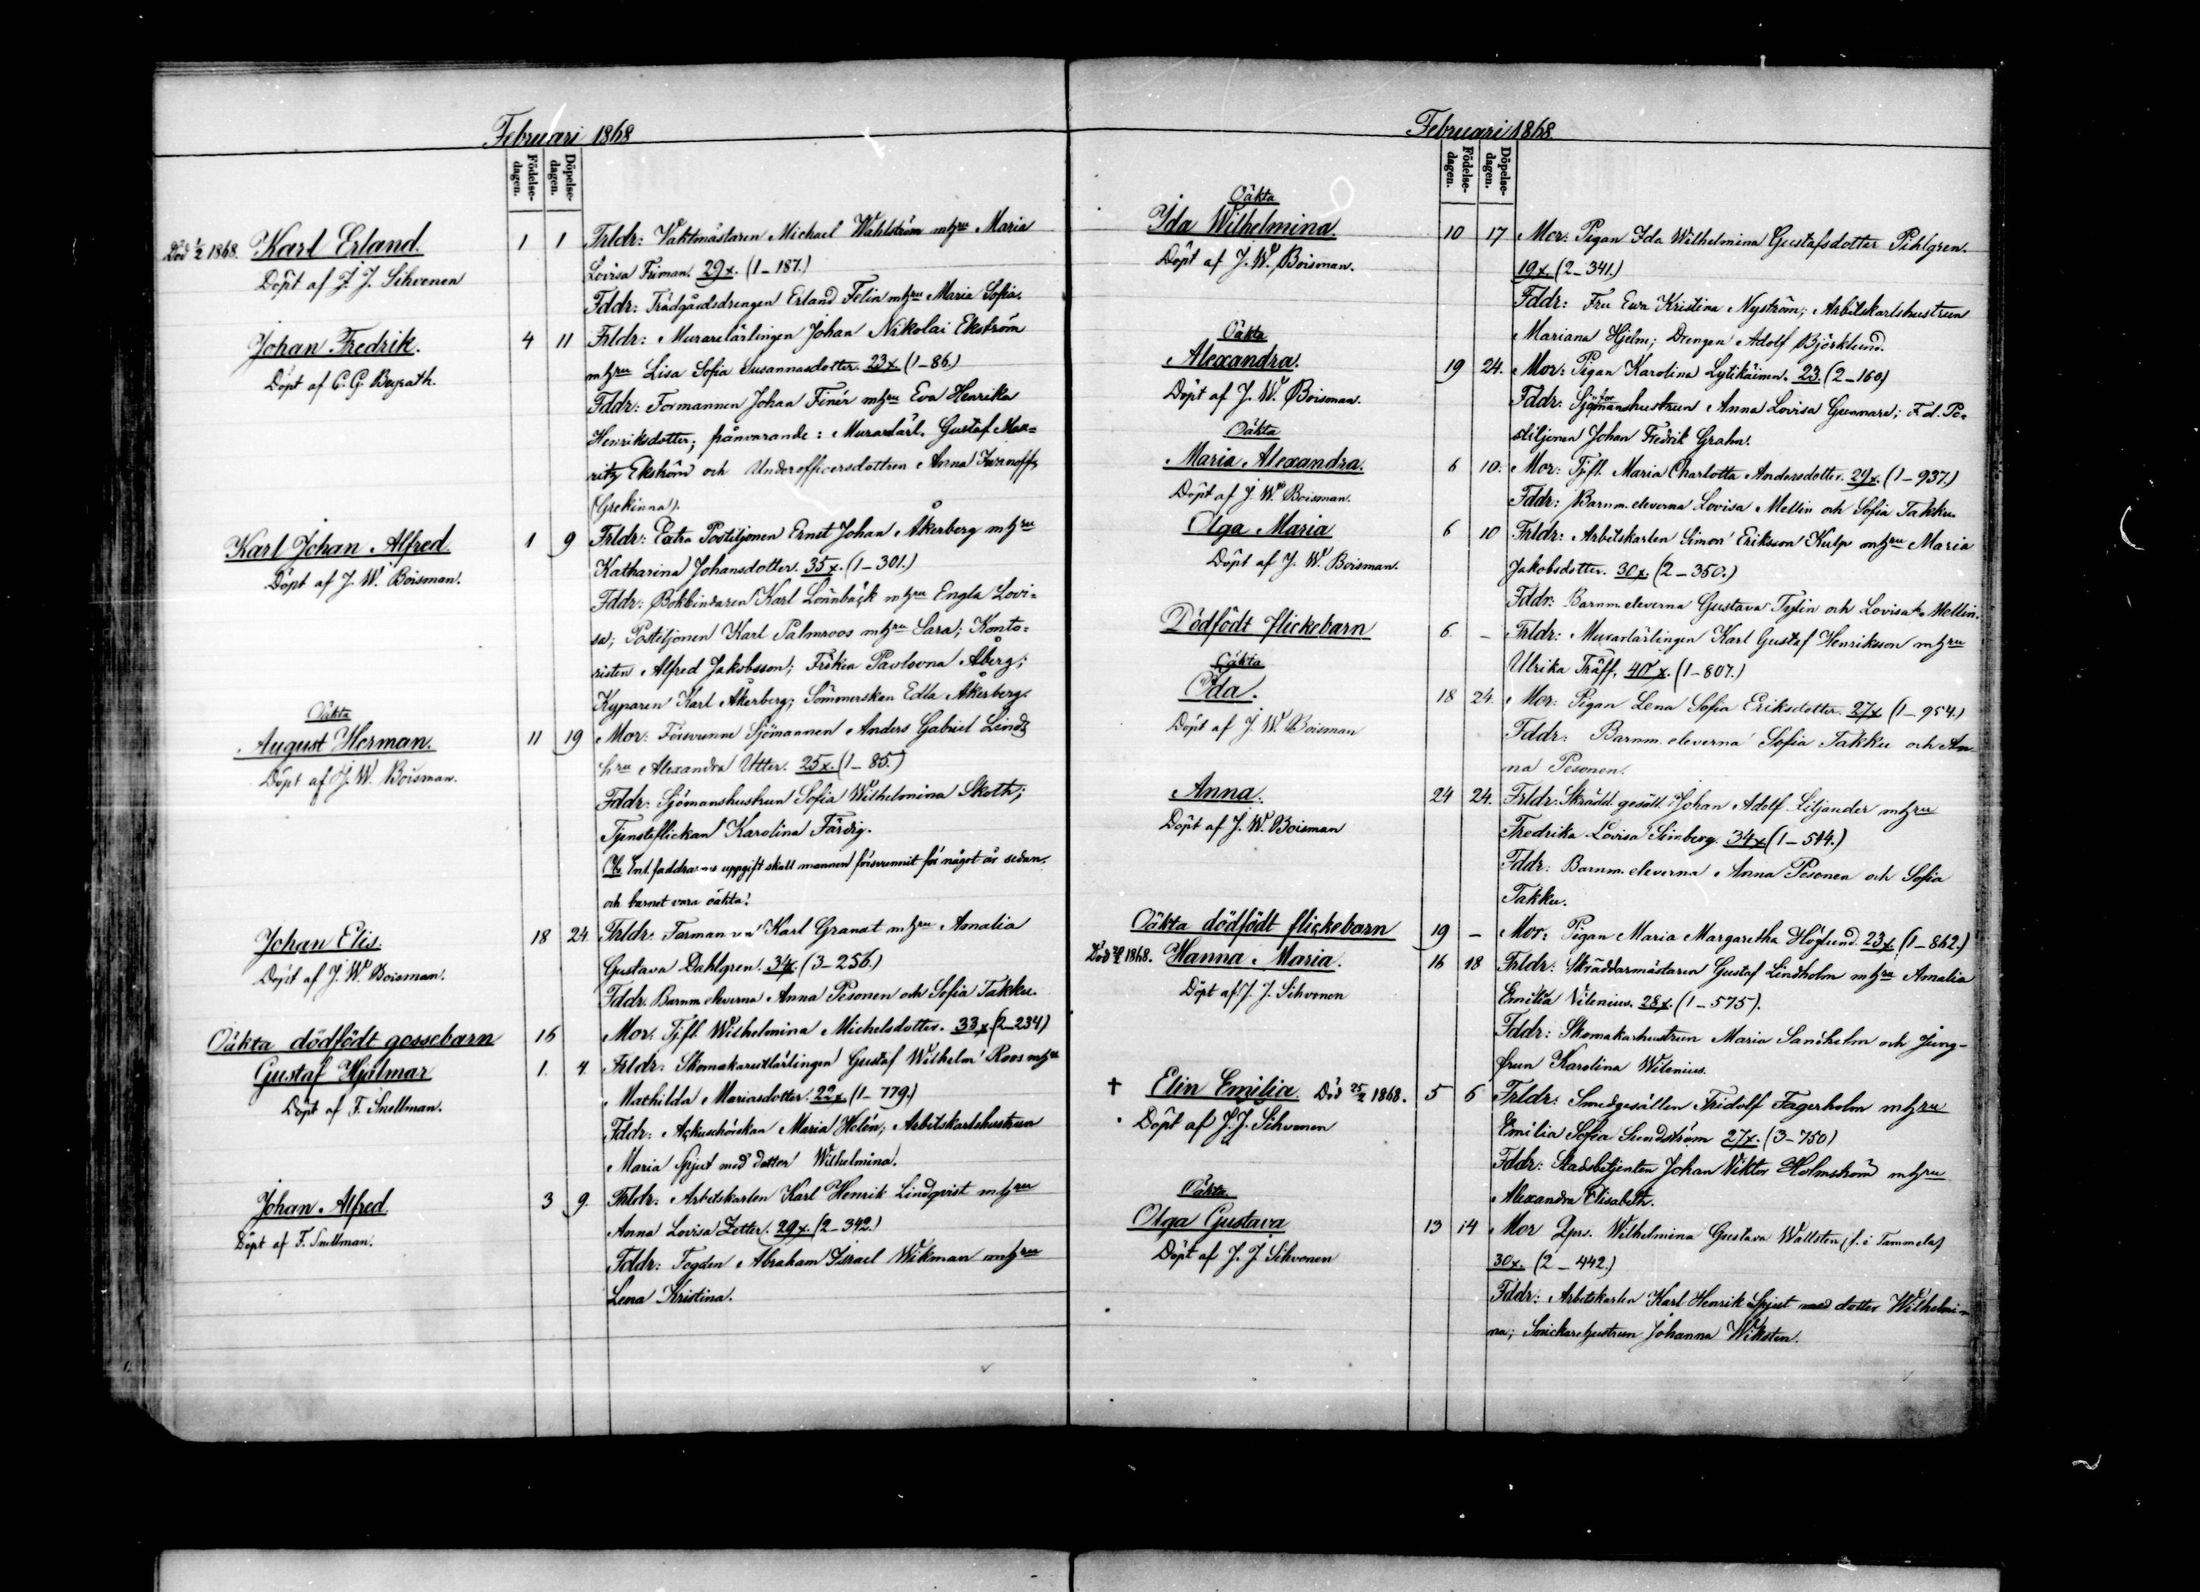 Februari 1868
Födelse-dagen.
Döpelse-dagen.
Död 1/2 1868. Karl Erland.
Döpt af J. J. Sihvonen
1 1
Frldr: Vaktmästaren Michael Wahlström m hru Maria
Lovisa Friman. 29 x. (1–187.)
Fddr: Trädgårdsdrengen Erland Felin m hru Maria Sofia.
Johan Fredrik.
Döpt af C. G. Beyrath.
4 11
Frldr: Murarelärlingen Johan Nikolai Ekström
m hru Lisa Sofia Susannasdotter. 23 x. (1–86.)
Fddr: Formannen Johan Finér m hru Eva Henrika
Henriksdotter; frånvarande: Murarelärl. Gustaf Mau=
ritz Ekström och Underofficersdottren Anna Iwanoff
(Grekinna).
Karl Johan Alfred.
Döpt af J. W. Boisman.
1 9
Frldr: Extra Postiljonen Ernst Johan Åkerberg m hru
Katharina Johansdotter. 35 x. (1–301.)
Fddr: Bokbindaren Karl Lönnbäck m hru Engla Lovi=
sa; Postiljonen Karl Palmroos m hru Sara; Konto=
risten Alfred Jakobsson; Fröken Pavlovna Åberg;
Kyparen Karl Åkerberg; Sömmerskan Edla Åkerberg.
Oäkta
August Herman.
Döpt af J. W. Boisman.
11 19
Mor: Försvunne Sjömannen Anders Gabriel Linds
hru Alexandra Utter. 25 x. (1–85.)
Fddr: Sjömanshustrun Sofia Wilhelmina Skoth;
Tjensteflickan Karolina Färdig.
Obs Enl. faddrarnes uppgift skall mannen försvunnit för något år sedan.
och barnet vara oäkta.
Johan Elis.
Döpt af J. W. Boisman.
18 24
Frldr: Formannen Karl Granat m hru Amalia
Gustava Dahlgren. 34 x. (3–256.)
Fddr. Barnm. eleverna Anna Pesonen och Sofia Takku.
Oäkta dödfödt gossebarn
16
Mor: Tjfl. Wilhelmina Michelsdotter. 33 x. (2–234)
Gustaf Hjalmar
Döpt af F. Snellman.
1. 4.
Frldr: Skomakarelärlingen Gustaf Wilhelm Roos m hru
Mathilda Mariasdotter. 22 x. (1–779.)
Fddr: Ackuschörskan Maria Helén; Arbetskarlshustrun
Maria Spjut med dotter Wilhelmina.
Johan Alfred.
Döpt af F. Snellman.
3 9.
Frldr: Arbetskarlen Karl Henrik Lindqvist m hru
Anna Lovisa Zetter. 29 x. (2–342.)
Fddr: Fogden Abraham Israel Wikman m hru
Lena Kristina.
Februari 1868.
Födelse-dagen.
Döpelse-dagen.
Oäkta
Ida Wilhelmina
Döpt af J. W. Boisman.
10 17
Mor: Pigan Ida Wilhelmina Gustafsdotter Pihlgren.
19 x. (2–341.)
Fddr: Fru Ewa Kristina Nyström; Arbetskarlshustrun
Mariana Hjelm; Drengen Adolf Björklund.
Oäkta
Alexandra.
Döpt af J. W. Boisman.
19 24.
Mor: Pigan Karolina Lytikäinen. 23. (2–160)
Fddr: Sjömanshustrun Anna Lovisa Gunnare; F. d. Po=
stiljonen Johan Fredrik Grahn.
Oäkta
Maria Alexandra.
Döpt af J. W. Boisman.
6 10.
Mor: Tjfl. Maria Charlotta Andersdotter. 29 x. (1–937.)
Fddr: Barnm. eleverna Lovisa Mellin och Sofia Takku.
Olga Maria
Döpt af J. W. Boisman.
6 10
Frldr: Arbetskarlen Simon Eriksson Kulp m hru Maria
Jakobsdotter. 30 x. (2–350.)
Fddr: Barnm. eleverna Gustava Tylin och Lovisa Mellin.
Dödfödt flickebarn
6. –
Frldr: Murarelärlingen Karl Gustaf Henriksson m hru
Ulrika Träff. 40 x. (1–807.)
Oäkta
Ida.
Döpt af J. W. Boisman
18 24.
Mor: Pigan Lena Sofia Eriksdotter. 27 x (1–954.)
Fddr: Barnm. eleverna Sofia Takku och An
na Pesonen.
Anna.
Döpt af J. W. Boisman
24 24.
Frldr: Skrädd. gesäll. Johan Adolf Liljander m hru
Fredrika Lovisa Simberg. 34 x. (1–514.)
Fddr: Barnm. eleverna Anna Pesonen och Sofia
Takku.
Oäkta dödfödt flickebarn
19 –
Mor: Pigan Maria Margaretha Höglund. 23 x. (1–862.)
Död 1868. Hanna Maria.
Döpt af J. J. Sihvonen
16 18
Frldr: Skräddarmästaren Gustaf Lindholm m hru Amalia
Emilia Vilenius. 28 x. (1–575).
Fddr: Skomakarhustrun Maria Sandholm och Jung-
frun Karolina Wilenius.
† Elin Emilia. Död 25/2 1868.
Döpt af J. J. Sihvonen
5 6
Frldr: Smedgesällen Fridolf Fagerholm m hru
Emilia Sofia Sundström 27 x. (3–750)
Fddr: Stadsbetjenten Johan Viktor Holmström m hru
Alexandra Elisabeth.
Oäkta
Olga Gustava
Döpt af J. J. Sihvonen
13 14
Mor Wilhelmina Gustava Wallsten (f. i Tammela)
30 x. (2–442.)
Fddr: Arbetskarlen Karl Henrik Spjut med dotter Wilhelmi=
na; Snickarehustrun Johanna Wiksten.